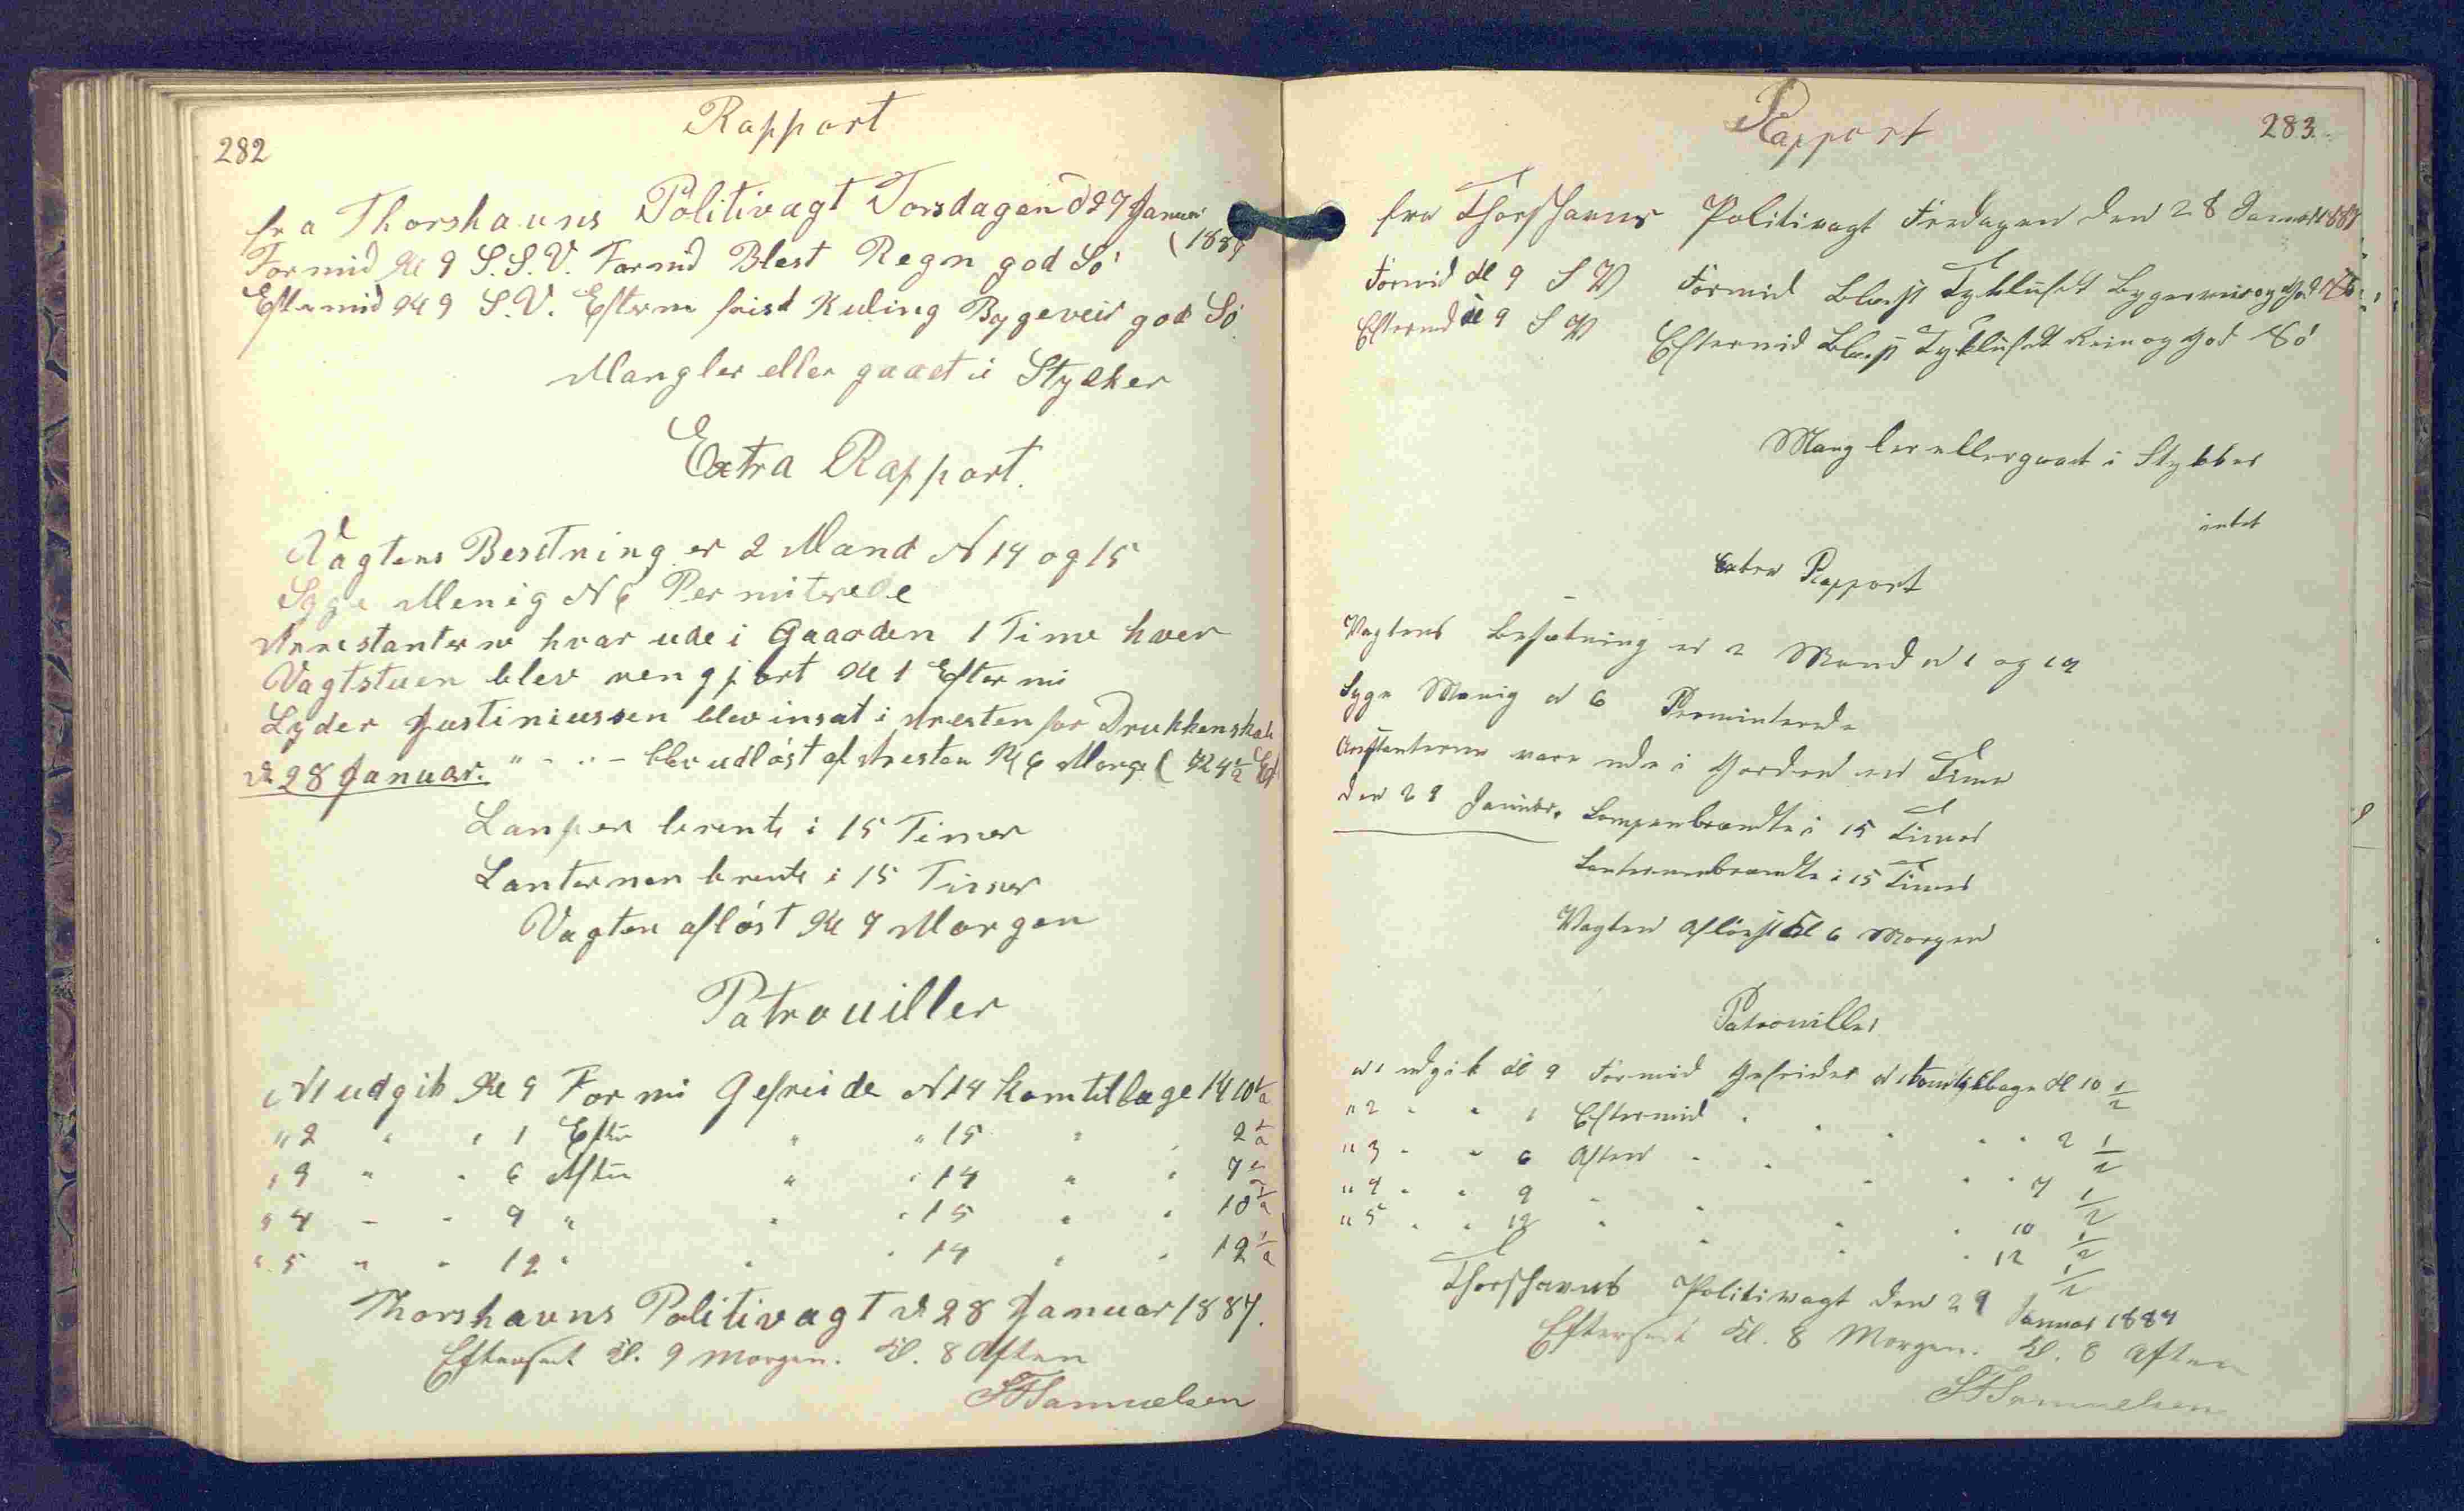 282
Rapport
fra Thorshauns Politivagt Torsdagen d 27 Januar
(1887
Formid Kl 9 S.S.V. Formd Blest Regn god Sö
Eftermid Kl 9 S.V. Efterm frist Kuling Bygeveir god Sö
Mangler eller gaaet i Stykker
Extra Rapport.
Vagtens Besetning er 2 Mand N 14 og 15
Syge Menig N 6 Permiterede
Arrestanterne hvar ude i Gaarden 1 Time hver
Vagtstuen blev rengjort Kl 1 Eftermi
Lyder Justiniussen blev insat i Aresten for Drukkenskab
d 28 Januar. " - " - blev udlöst af Aresten Kl 6 Morge ( 4 1/2 Ef
Lampen brente i 15 Timer
Lanternen brente i 15 Timer
Vagten aflöst Kl 7 Morgen
Patrouiller
N 1 udgik Kl 9 Formi Gefreide N 14 kom tilbage Kl 10 1/2
" 2 " " 1 Efter " " 15 " " 2 1/2
" 3 " " 6 Aften " " 14 " " 7 1/2
" 4 " " 9 " " " 15 " " 10 1/2
" 5 " " 12 " " " 14 " " 12 1/2
Thorshauns Politivagt d 28 Januar 1887.
Efterseet Kl. 9 Morgen. Kl. 8 Aften
Samuelsen
Rapport
283.
fra Thorshavns Politivagt Fredagen den 28 Januar 1887
Formid Kl 9 S V Formid Blæst Tykluft Bygerveir og God Sö
Eftermd Kl 9 S V Eftermid Blæst Tykluft Rein og God Sö
Mangler eller gaaet i Stykker
intet
Extra Rapport
Vagtens Besætning er 2 Mand N 1 og 14
Syge Menig N 6 Perminterede
Arestanterne vare ude i Gorden en Time
den 29 Januar. Lampen brændte i 15 Timer
Lanternen brændte i 15 Timer
Vagten Aflöest Kl 6 Morgen
Patrouiller
N 1 udgik Kl 9 Formid Gefreider N 1 kom tilbage Kl 10 1/2
" 2 " " 1 Eftermid " " " " " 2 1/2
" 3 " " 6 Aften " " " " " 7 1/2
" 4 " " 9 " " " " 10 1/2
" 5 " " 12 " " " " 12 1/2
Thorshavns Politivagt den 29 Januar 1887
Efterseet Kl. 8 Morgen. Kl. 8 Aften
Samuelsen